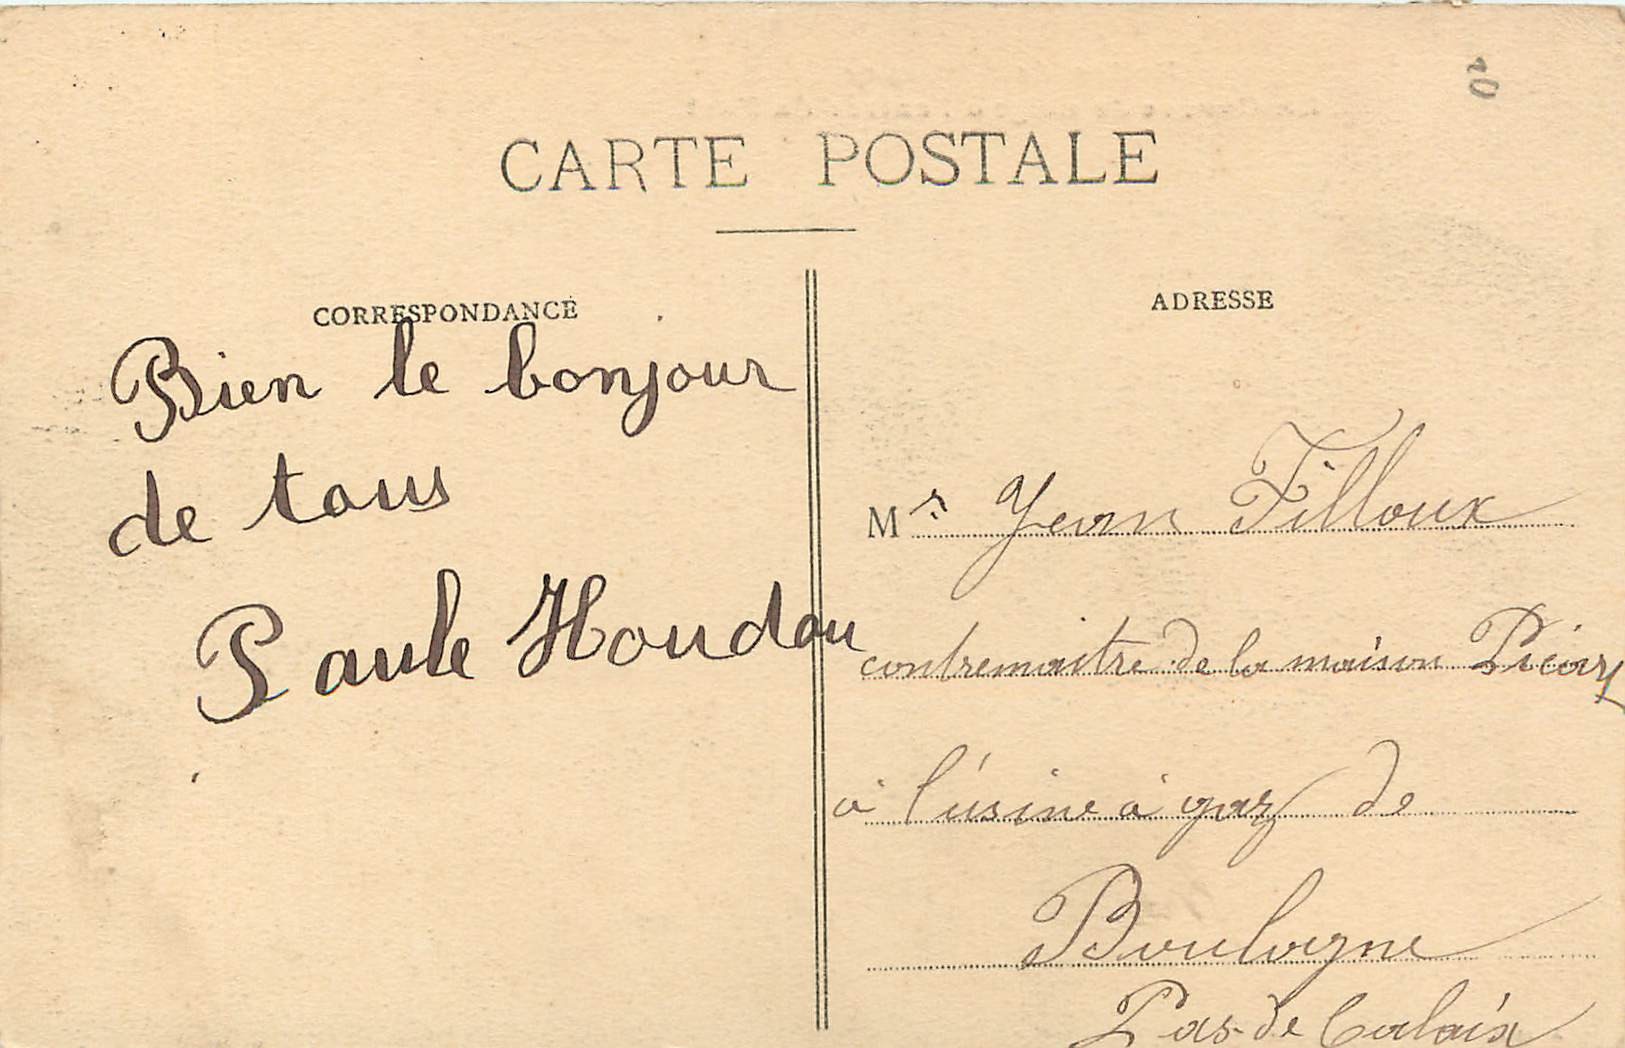 20
CARTE POSTALE
CORRESPONDANCE
Bien le bonjour
de tous
Paule Houdau
ADRESSE
Mr. Jean Filloux
contremaitre de la maison
à l'usine à gaz de
Boulogne
Pas-de Calais